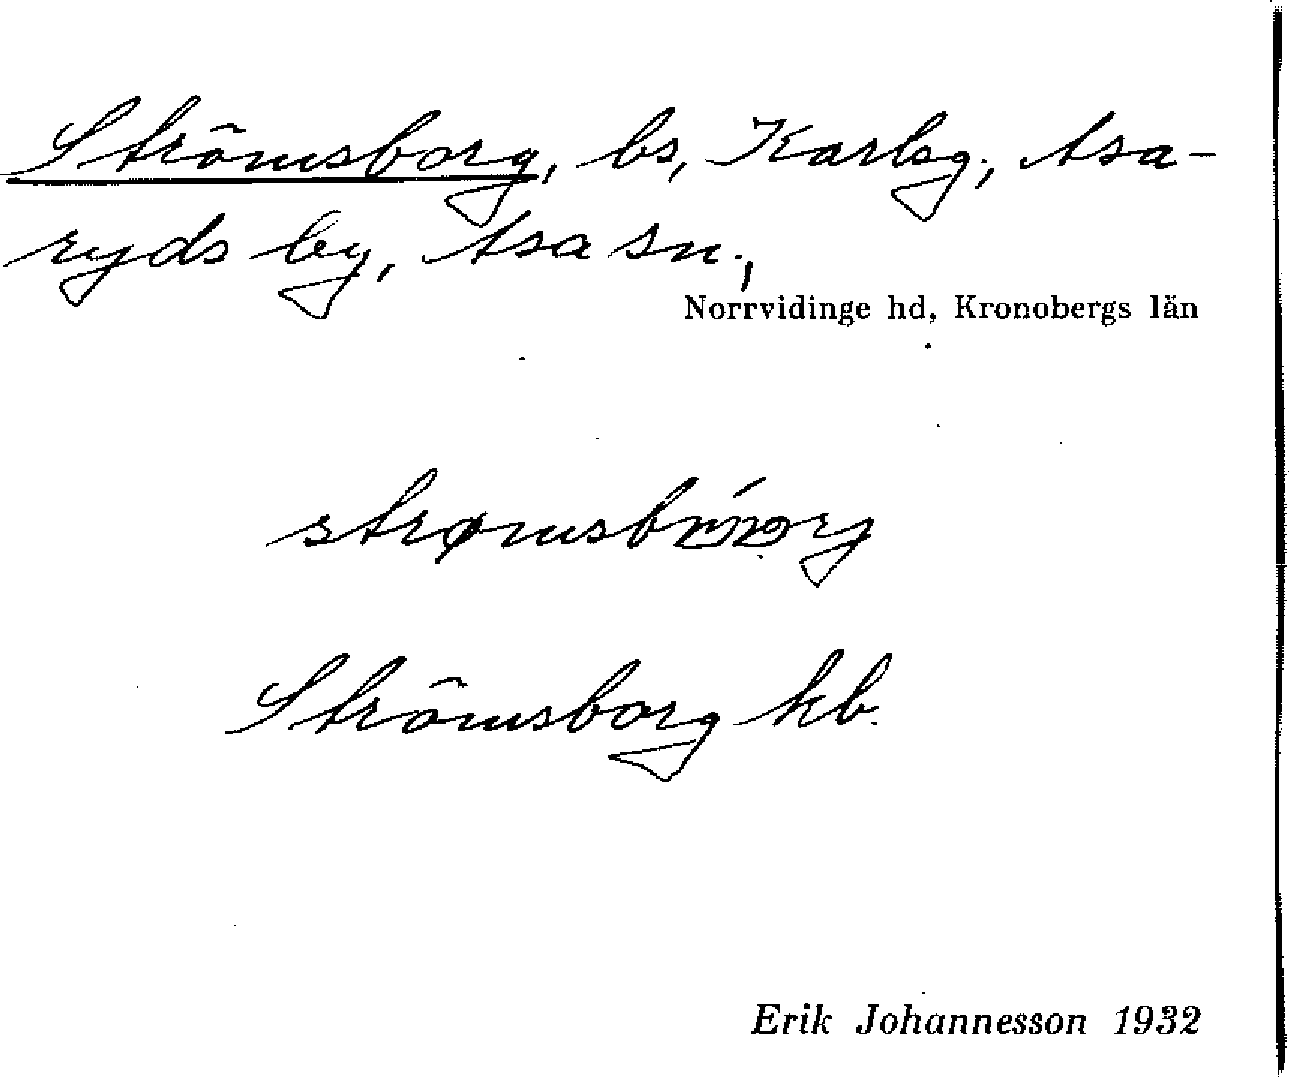 Strömsborg, bs, Karlsg., Asa-
ryds by, Asa sn.,
Norrvidinge hd, Kronobergs län
Strömsborg kb.
Erik Johannesson 1932